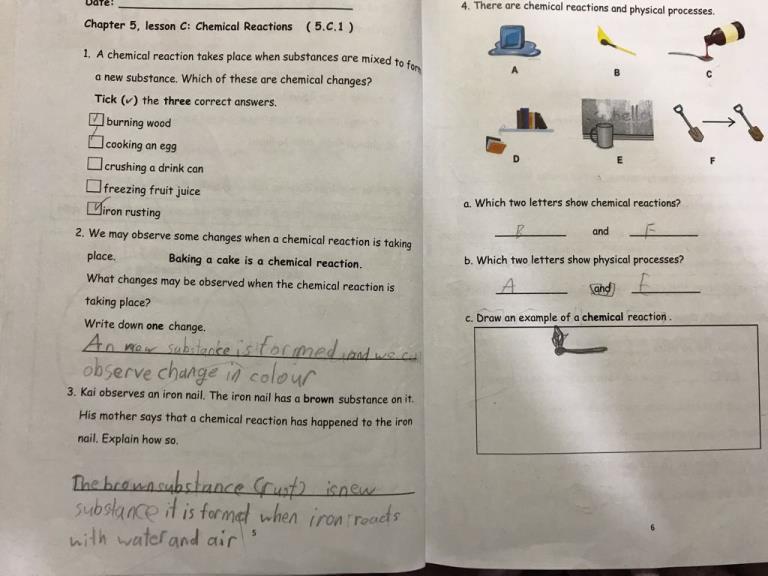 Date:
Chapter 5, lesson C: Chemical Reactions ( 5.C.1 )
1. A chemical reaction takes place when substances are mixed to form
a new substance. Which of these are chemical changes?
Tick (✓) the three correct answers.
burning wood
cooking an egg
crushing a drink can
freezing fruit juice
iron rusting
2. We may observe some changes when a chemical reaction is taking
place. Baking a cake is a chemical reaction.
What changes may be observed when the chemical reaction is
taking place?
Write down one change.
An new substance is formed and we
observe change in colour
3. Kai observes an iron nail. The iron nail has a brown substance on it.
His mother says that a chemical reaction has happened to the iron
nail. Explain how so.
The brown substance (rust) is new
substance it is formed when iron reacts
with water and air
5
4. There are chemical reactions and physical processes.
A B C
hello
D E F
a. Which two letters show chemical reactions?
B and F
b. Which two letters show physical processes?
A and E
c. Draw an example of a chemical reaction.
6